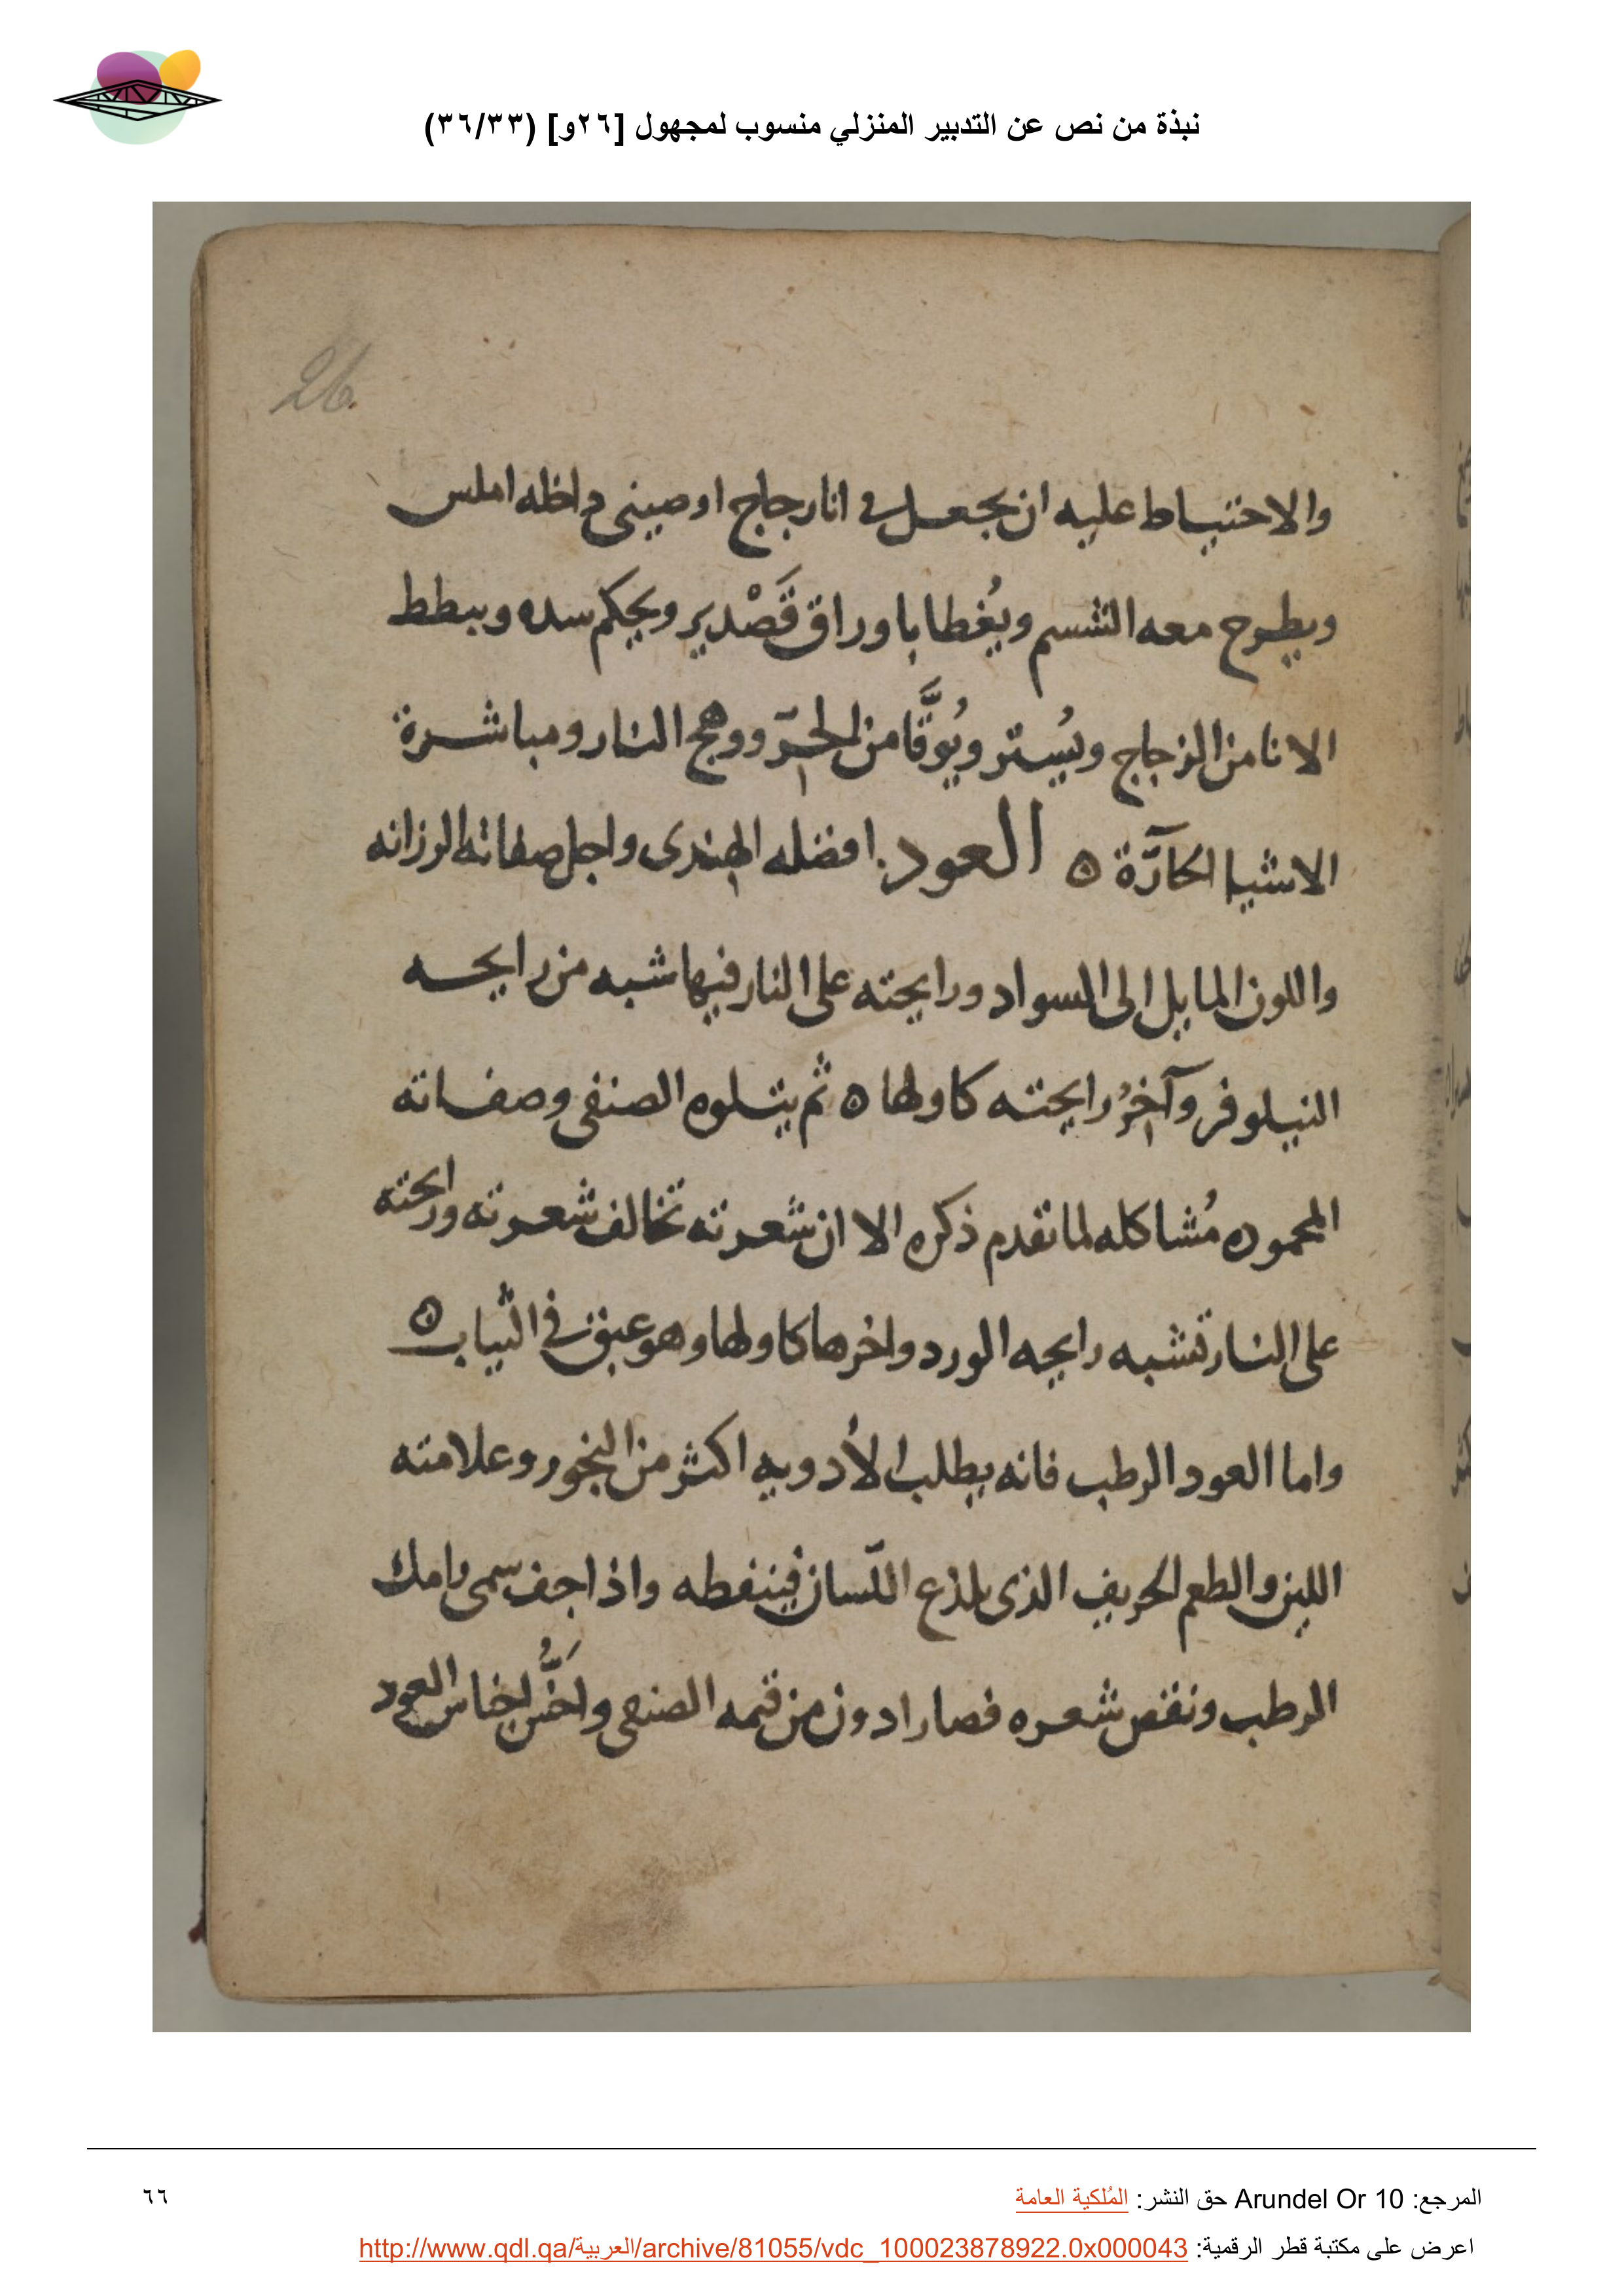 نبذة من نص عن التدبير المنزلي منسوب لمجهول [٢٦و] (٣٦/٣٣)
26.
والاحتياط عليه ان يجعل فى انا زجاج او صينى داخله املس
ويطرح معه السمسم ويُغطا باوراق قَصْدير ويحكم سده ويبطط
الانا من الزجاج ويُستر ويُوقَّا من الحرّ ووهج النار ومباشرة
الاشيا الحارّة ه العود. افضله الهندى واجل صفاته الرزانه
واللون المايل الى السواد ورايحته على النار فيها شبه من رايحه
النيلوفر وآخرُ رايحته كاولها ه ثم يتلوه الصنفى وصفاته
المحموده مُشاكله لما تقدم ذكره الا ان شعرته تخالف شعرته ورايحته
على النار تشبه رايحه الورد واخرها كاولها وهو عبق فى الثياب ه
واما العود الرطب فانه يطلب الأدويه اكثر من البخور وعلامته
اللين والطعم الحريف الذى يلذع اللسان فينفطه واذا جف سمى
الرطب ونقص شعره فصار ادون من قيمه الصنفى واخسُّ اجناس العود
المرجع: Arundel Or 10 حق النشر: المُلكية العامة
٦٦
اعرض على مكتبة قطر الرقمية: http://www.qdl.qa/العربية/archive/81055/vdc_100023878922.0x000043